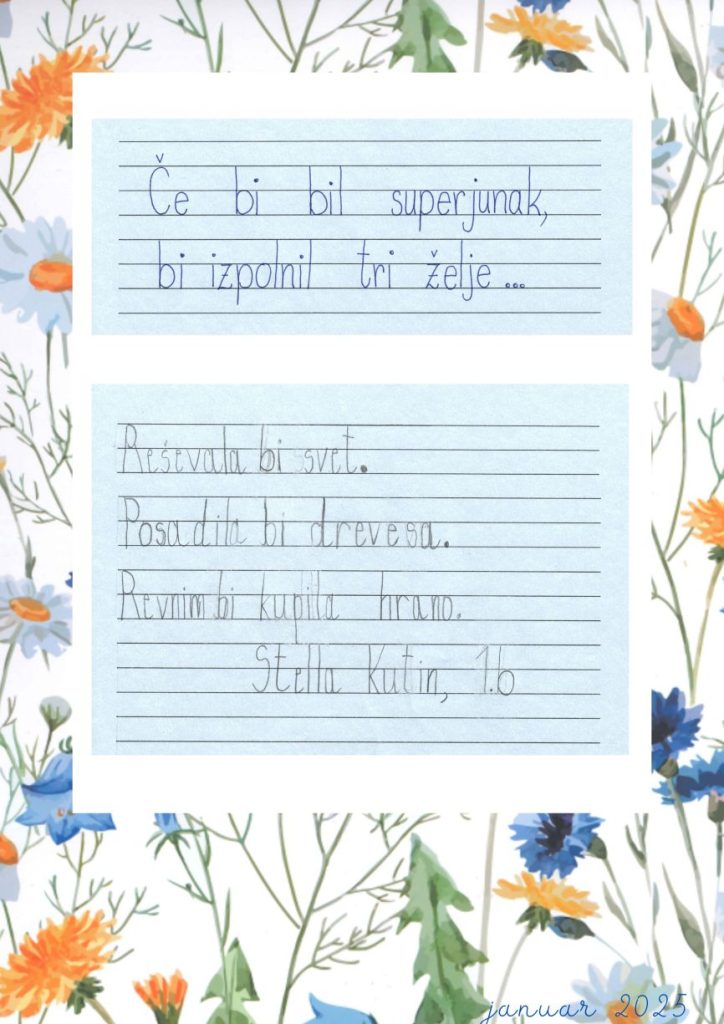 Če bi bil superjunak,
bi izpolnil tri želje...
Reševala bi svet.
Posadila bi drevesa.
Revnim bi kupila hrano.
Stella Kutin, 1.b
januar 2025